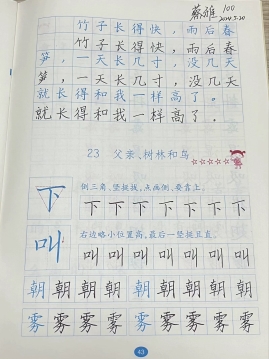 蔡雅 100
2014.5.20
竹子长得快，雨后春
竹子长得快，雨后春
笋，一天长几寸，没几天
笋，一天长几寸，没几天
就长得和我一样高了。
就长得和我一样高了。
23 父亲、树林和鸟
下 倒三角、竖挺拔，点画倒、要靠上。
下下下下下下下
叫 右边略小位置高，最后一竖挺且直。
叫叫叫叫叫叫叫
朝朝朝朝朝朝朝朝朝
雾雾雾雾雾雾雾雾雾
43